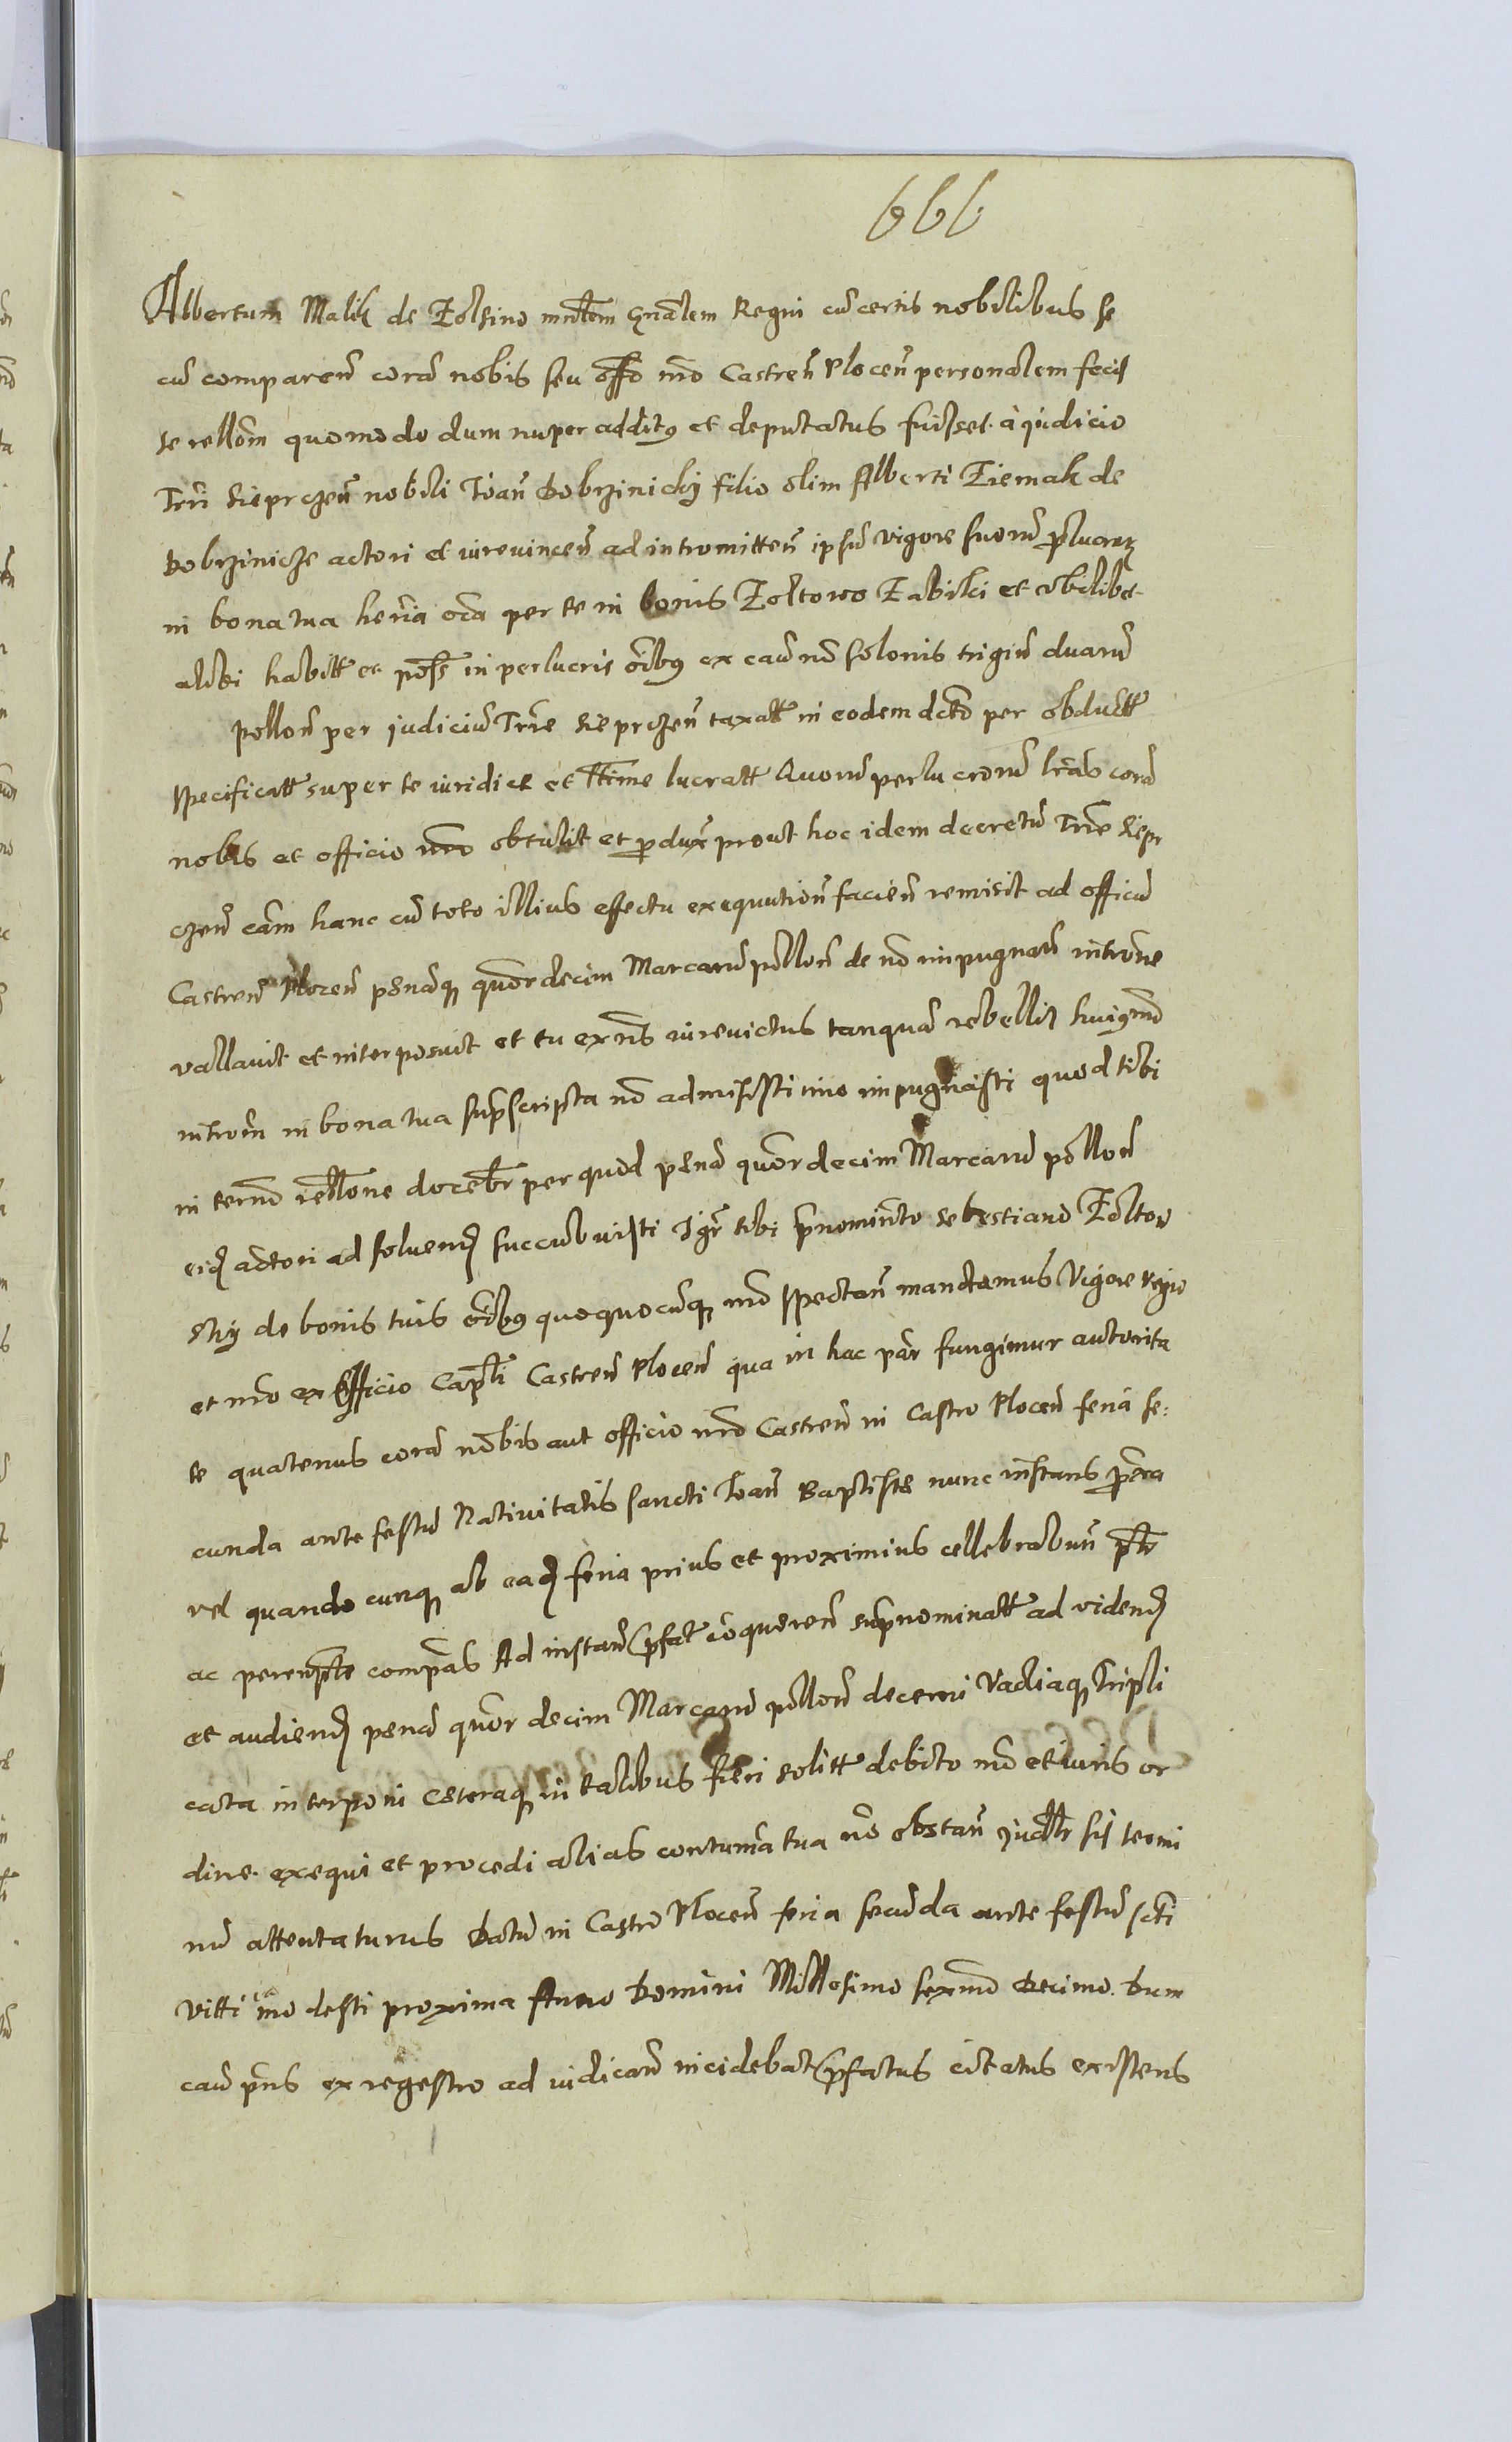 666
Albertum Malik de Zolsino mnrlem gnalem Regni cũ certis nobilibus se
cũ comparen̄ corã nobis seu offo nro Castren̄ Plocen̄ personalem fecis
se rellom̃ quomodo dum nuper additus et deputatus fuisset à judicio
Trri Sieprczen̄ nobili Joan̄ Dobrzinicky filio olim Alberti Ziemak de
Dobrzinicze actori et iurevincen̄ ad intromitten̄ ipsũ vigore suorũ
in bona tua her̃ia oĩa per te in bonis Zoltowo Zabiki et ubilibet
alibi habitt et poss̃ in perlucris oĩbus ex cau͂ no͂ solonis trigin̄ duarũ
pollon̄ per judiciũ Trr̃e Sieprczen̄ taxatt in eodem dcto per obductt
specificatt super te iuridice et ttime lucratt Quorũ perlucrorũ lr̃as corã
nobis et officio nr̃o obtulit et produx̃ prout hoc idem decretũ Trr̃e Siepr
czen̄ cãm hanc cũ toto illius effectu exequution̄ facien̄ remisit ad officiũ
Castren̄ Plocen̄ penãq quor decim Marcarũ pollon̄ de no͂ impugnan̄ intrõne
vallavit et interposuit et tu ex nõs iurevictus tanquã rebellis huiusmo͂
introm̃ in bona tua suprascripta no͂ admisisti imo impugnasti quod tibi
in termo͂ rellone docebr̃ per quod penã quor decim Marcarũ pollon̄
eid actori ad solvend succubuisti Igr̃ tibi prenominato Sebastiano Zoltow
sky de bonis tuis oĩbus quoquocũq mo͂ spectan̄ mandamus Vigore regio
et nr̃o ex officio Capli Castren̄ Plocen̄ qua in hac par̃ fungimur autorita
te quatenus corã nobis aut officio nr̃o Castren̄ in Castro Plocen̄ feria se:
cunda ante festũ Nativitatis Sancti Joan̄ Baptiste nunc instans pr̃oxa
vel quando cunq ab ead feria prius et proximius cellebrabun̄ plr
ac perempte compr̃as Ad instan̄ prefat conqueren̄ supranominatt ad videnđ
et audienđ penã quor decim Marcarũ pollon̄ decerni Vadiaq tripli
cata interponi ceteraq in talibus fieri solitt debito mo͂ et iuris or
dine exequi et procedi alias contumã tua no͂ obstan̄ judlr̃ fiet termi
nũ attentaturus Datũ in Castro Plocen̄ feria secũda ante festũ scti
Vitti mo desti proxima Anno Domini Millesimo sexmo͂ Decimo. Dum
cau͂ pr̃ns ex regestro ad iudican̄ incidebat prefatus citatus existens